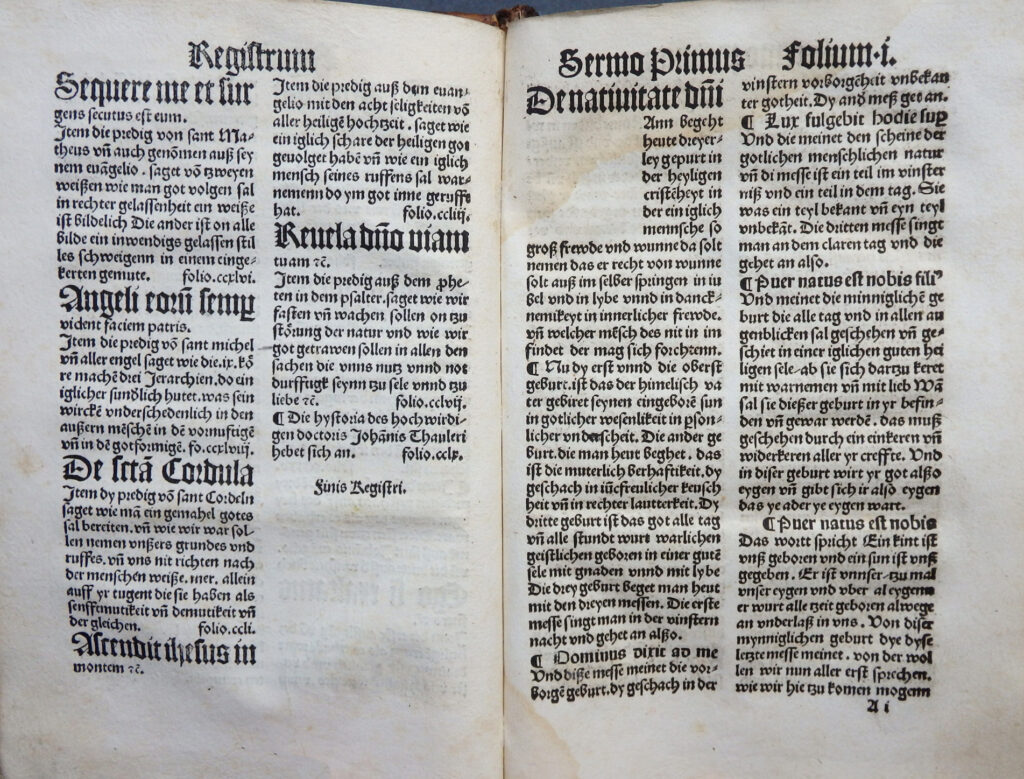 Registrum
Sequere me et sur
gens secutus est eum.
Item die predig von sant Ma-
theus vñ auch genõmen auß sey
nem euãgelio . saget võ tzweyen
weißen wie man got volgen sal
in rechter gelassenheit ein weiße
ist bildelich Die ander ist on alle
bilde ein inwendigs gelassen stil
les schweigenn in einem einge-
kerten gemute. folio.ccxlvi.
Angeli eorũ semp
vident faciem patris.
Item die predig võ sant michel
vñ aller engel saget wie die.ix.kõ
re machẽ drei Jerarchien.do ein
iglicher sunðlich hutet.was sein
wircke vnderschedenlich in den
außern mẽschẽ in dẽ vornuftigẽ
vñ in dẽ gotformigẽ. fo.ccxlviij.
De sctã Cordula
Item dy predig võ sant Cordeln
saget wie mã ein gemahel gotes
sal bereiten. vñ wie wir war sol-
len nemen vnßers grundes vnd
ruffes. vñ vns nit richten nach
der menschen weiße. mer. allein
auff yr tugent die sie haben als
senfftmutikeit vñ demutikeit vñ
der gleichen. folio.ccli.
Ascendit ihesus in
montem ⁊c̃.
Item die predig auß dem euan-
gelio mit den acht seligkeiten võ
aller heiligẽ hochzeit . saget wie
ein iglich schare der heiligen got
geuolget habẽ vñ wie ein iglich
mensch seines ruffens sal war-
nemenn do ym got inne geruffẽ
hat. folio.ccliij.
Reuela dño viam
tuam ⁊c̃.
Item die predig auß dem phe-
ten in dem psalter. saget wie wir
fasten vñ wachen sollen on tzu
störung der natur vnd wie wir
got getrawen sollen in allen den
sachen die vnns nutz vnnd not
durfftigk seynn tzu sele vnnd tzu
liebe ⁊c̃. folio.cclvij.
¶ Die hystoria des hochwirdi-
gen doctoris Johãnis Thauleri
hebet sich an. folio.cclx.
Finis Registri.
Sermo Primus Folium.i.
De natiuitate dñi
Ann begeht
heute dreyer-
ley gepurt in
der heyligen
cristẽheyt in
der ein iglich
mennsche so
groß frewde vnd wunne da solt
nemen das er recht von wunne
solt auß im selber springen in iu
bel vnd in lybe vnnd in danck-
nemikeyt in innerlicher frewde.
vñ welcher mẽsch des nit in im
findet der mag sich forchtenn.
¶ Nu dy erst vnnd die oberst
geburt.ist das der himelisch va
ter gebiret seynen eingeborẽ sun
in gotlicher wesenlikeit in pson-
licher vnderscheit. Die ander ge
burt.die man heut beghet. das
ist die muterlich berhaftikeit.dy
geschach in iũcfreulicher keusch
heit vñ in rechter lautterkeit. Dy
dritte geburt ist das got alle tag
vñ alle stundt wurt warlichen
geistlichen geboren in einer gutẽ
sele mit gnaden vnnd mit lybe
Die drey geburt beget man heut
mit den dreyen messen. Die erste
messe singt man in der vinstern
nacht vnd gehet an alßo.
¶ Dominus dixit ad me
Vnd diße messe meinet die vor-
borgẽ geburt.dy geschach in der
vinstern vorborgẽheit vnbekan
ter gotheit. Dy and meß get an.
¶ Lux fulgebit hodie sup
Vnd die meinet den scheine der
gotlichen menschlichen natur
vñ di messe ist ein teil im vinster
niß vnd ein teil in dem tag. Sie
was ein teyl bekant vñ eyn teyl
vnbekãt. Die dritten messe singt
man an dem claren tag vnd die
gehet an also.
¶ Puer natus est nobis fili⁹
Vnd meinet die minniglichẽ ge
burt die alle tag vnd in allen au
genblicken sal geschehen vñ ge-
schiet in einer iglichen guten hei
ligen sele-ab sie sich dartzu keret
mit warnemen vñ mit lieb Wã
sal sie dießer geburt in yr befin-
den vñ gewar werdẽ. das muß
geschehen durch ein einkeren vñ
widerkeren aller yr creffte. Vnd
in diser geburt wirt yr got alßo
eygen vñ gibt sich ir also eygen
das ye ader ye eygen wart.
¶ Puer natus est nobis
Das wortt spricht Ein kint ist
vnß geboren vnd ein sun ist vnß
gegeben. Er ist vnnser-tzu mal
vnser eygen vnd vber al eygenn
er wurt alle zeit geboren alwege
an vnderlaß in vns. Von diser
mynniglichen geburt dye dyse
letzte messe meinet. von der wol
len wir nun aller erst sprechen.
wie wir hie tzu komen mogenn
A i